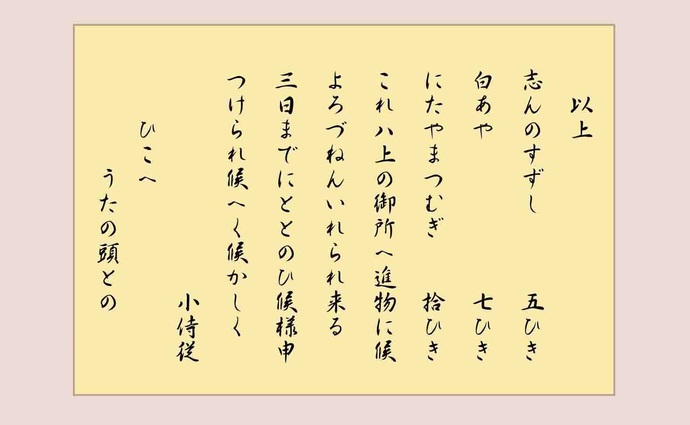 以上
志んのすずし 五ひき
白あや 七ひき
にたやまつむぎ 拾ひき
これハ上の御所へ進物に候
よろづねんいれられ来る
三日までにととのひ候様申
つけられ候へく候かしく
小侍従
ひこへ
うたの頭との